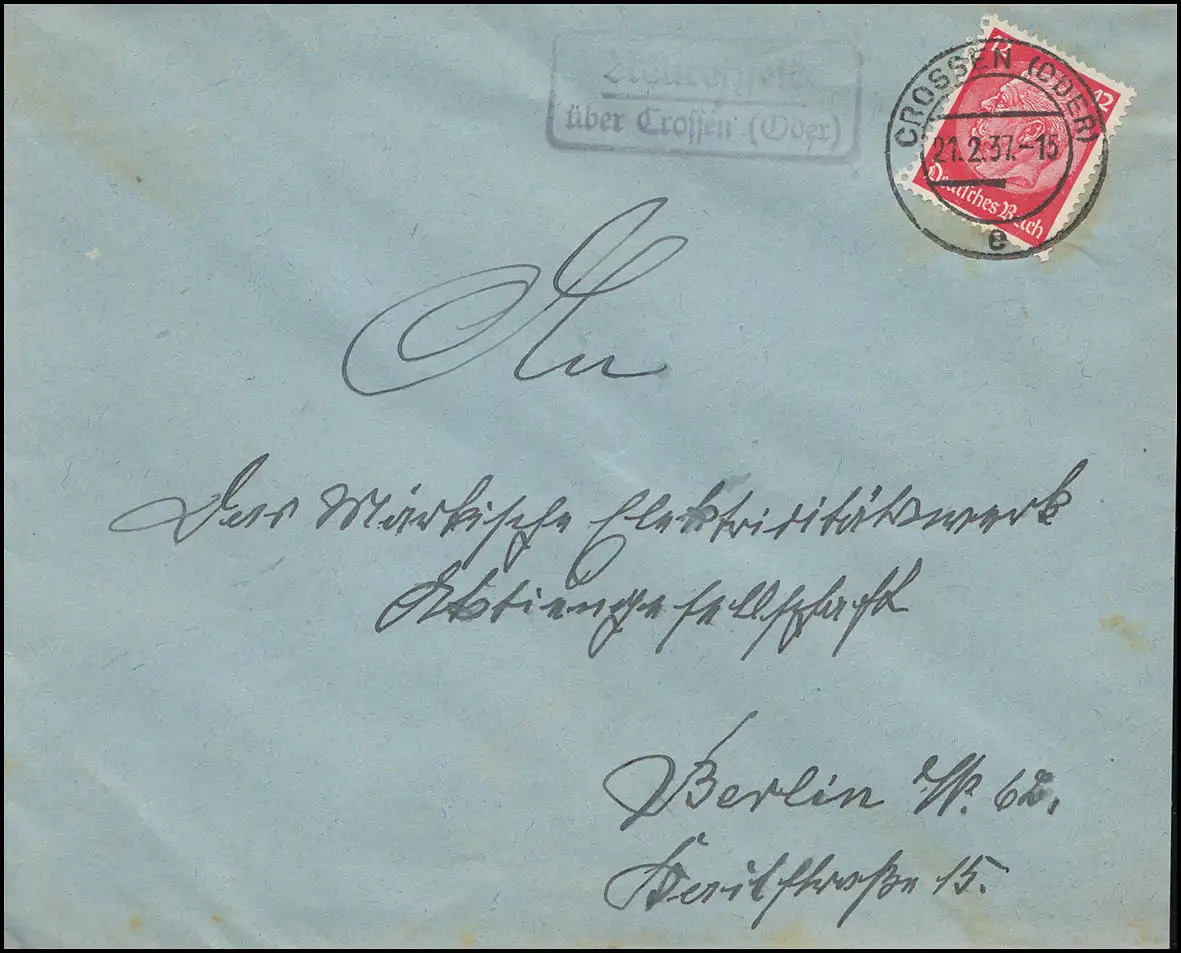 über Crossen (Oder)
CROSSEN (ODER)
21.2.37.-15
e
12
12
Deutsches Reich
An
Das Märkische Elektrizitätswerk
Aktiengesellschaft
Berlin W. 62,
15.